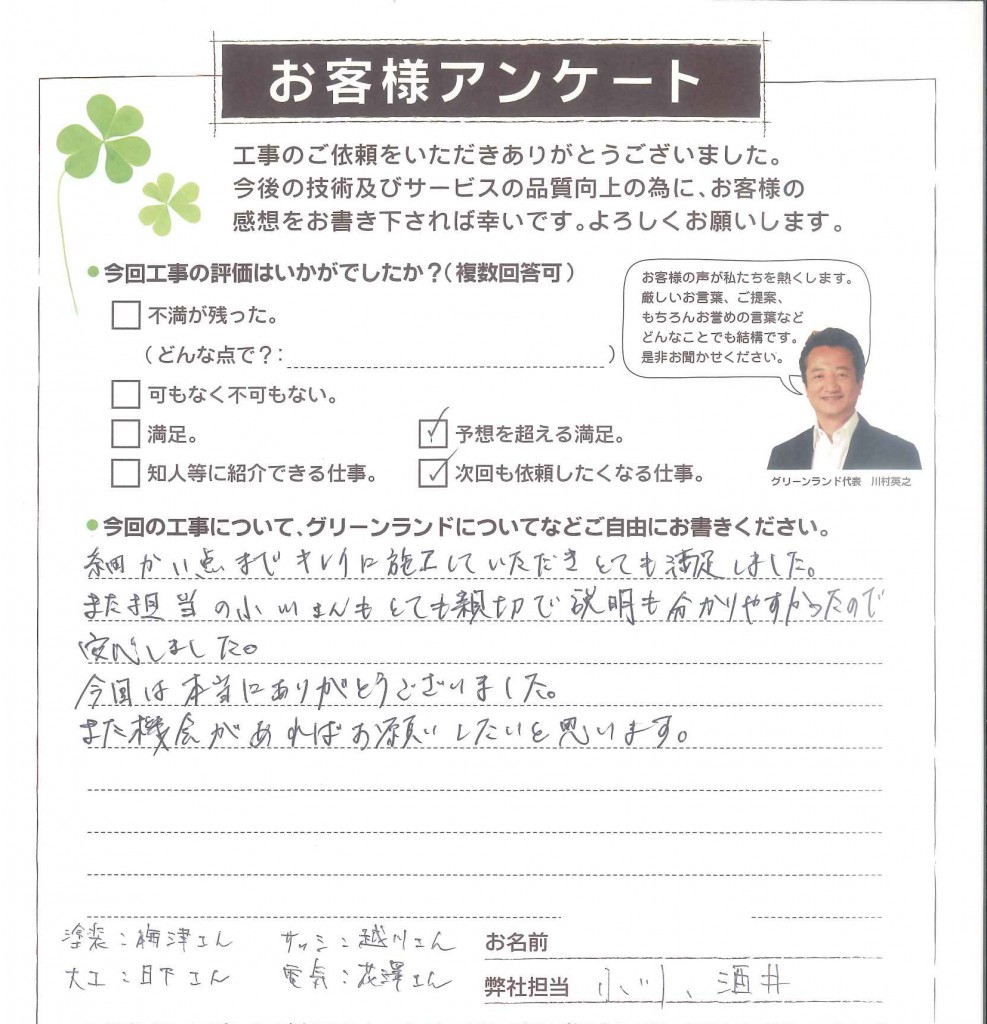 お客様アンケート
工事のご依頼をいただきありがとうございました。
今後の技術及びサービスの品質向上の為に、お客様の
感想をお書き下されば幸いです。よろしくお願いします。
●今回工事の評価はいかがでしたか？（複数回答可）
お客様の声が私たちを熱くします。
厳しいお言葉、ご提案、
もちろんお誉めの言葉など
どんなことでも結構です。
是非お聞かせください。
不満が残った。
（どんな点で？： ）
可もなく不可もない。
満足。 予想を超える満足。
知人等に紹介できる仕事。 次回も依頼したくなる仕事。
グリーンランド代表 川村英之
●今回の工事について、グリーンランドについてなどご自由にお書きください。
細かい点までキレイに施工していただきとても満足しました。
また担当の小川さんもとても親切で説明も分かりやすかったので
安心しました。
今回は本当にありがとうございました。
また機会があればお願いしたいと思います。
塗装：梅津さん サッシ：越川さん お名前
大工：日下さん 電気：花澤さん 弊社担当 小川、酒井